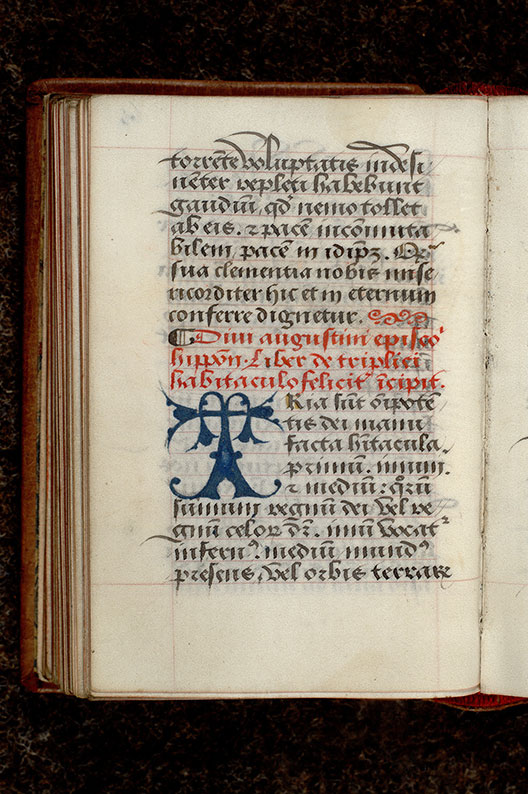 torrēte voluptatis indesi
nēter repleti habebunt
gaudiū, qđ nemo tollet
ab eis. ⁊ pacē incōmuta
bilem, pacē in idipꝫ. Qᵈ
sua clementia nobis mise
ricorditer hic et in eternum
conferre dignetur.
¶ Diui augustini episco᷒
hippoñ. Liber de triplici
habitaculo felicit᷒ īcipit.
TRia sūt ōīpotē
tis dei manu
facta hītacula.
primū. imum.
⁊ mediū: quoꝝ
summum regnū dei vel re
gnū celoꝝ dr̄. imū vocatᷣ
infernꝰ. mediū mundꝰ
presens, vel orbis terrarꝝ